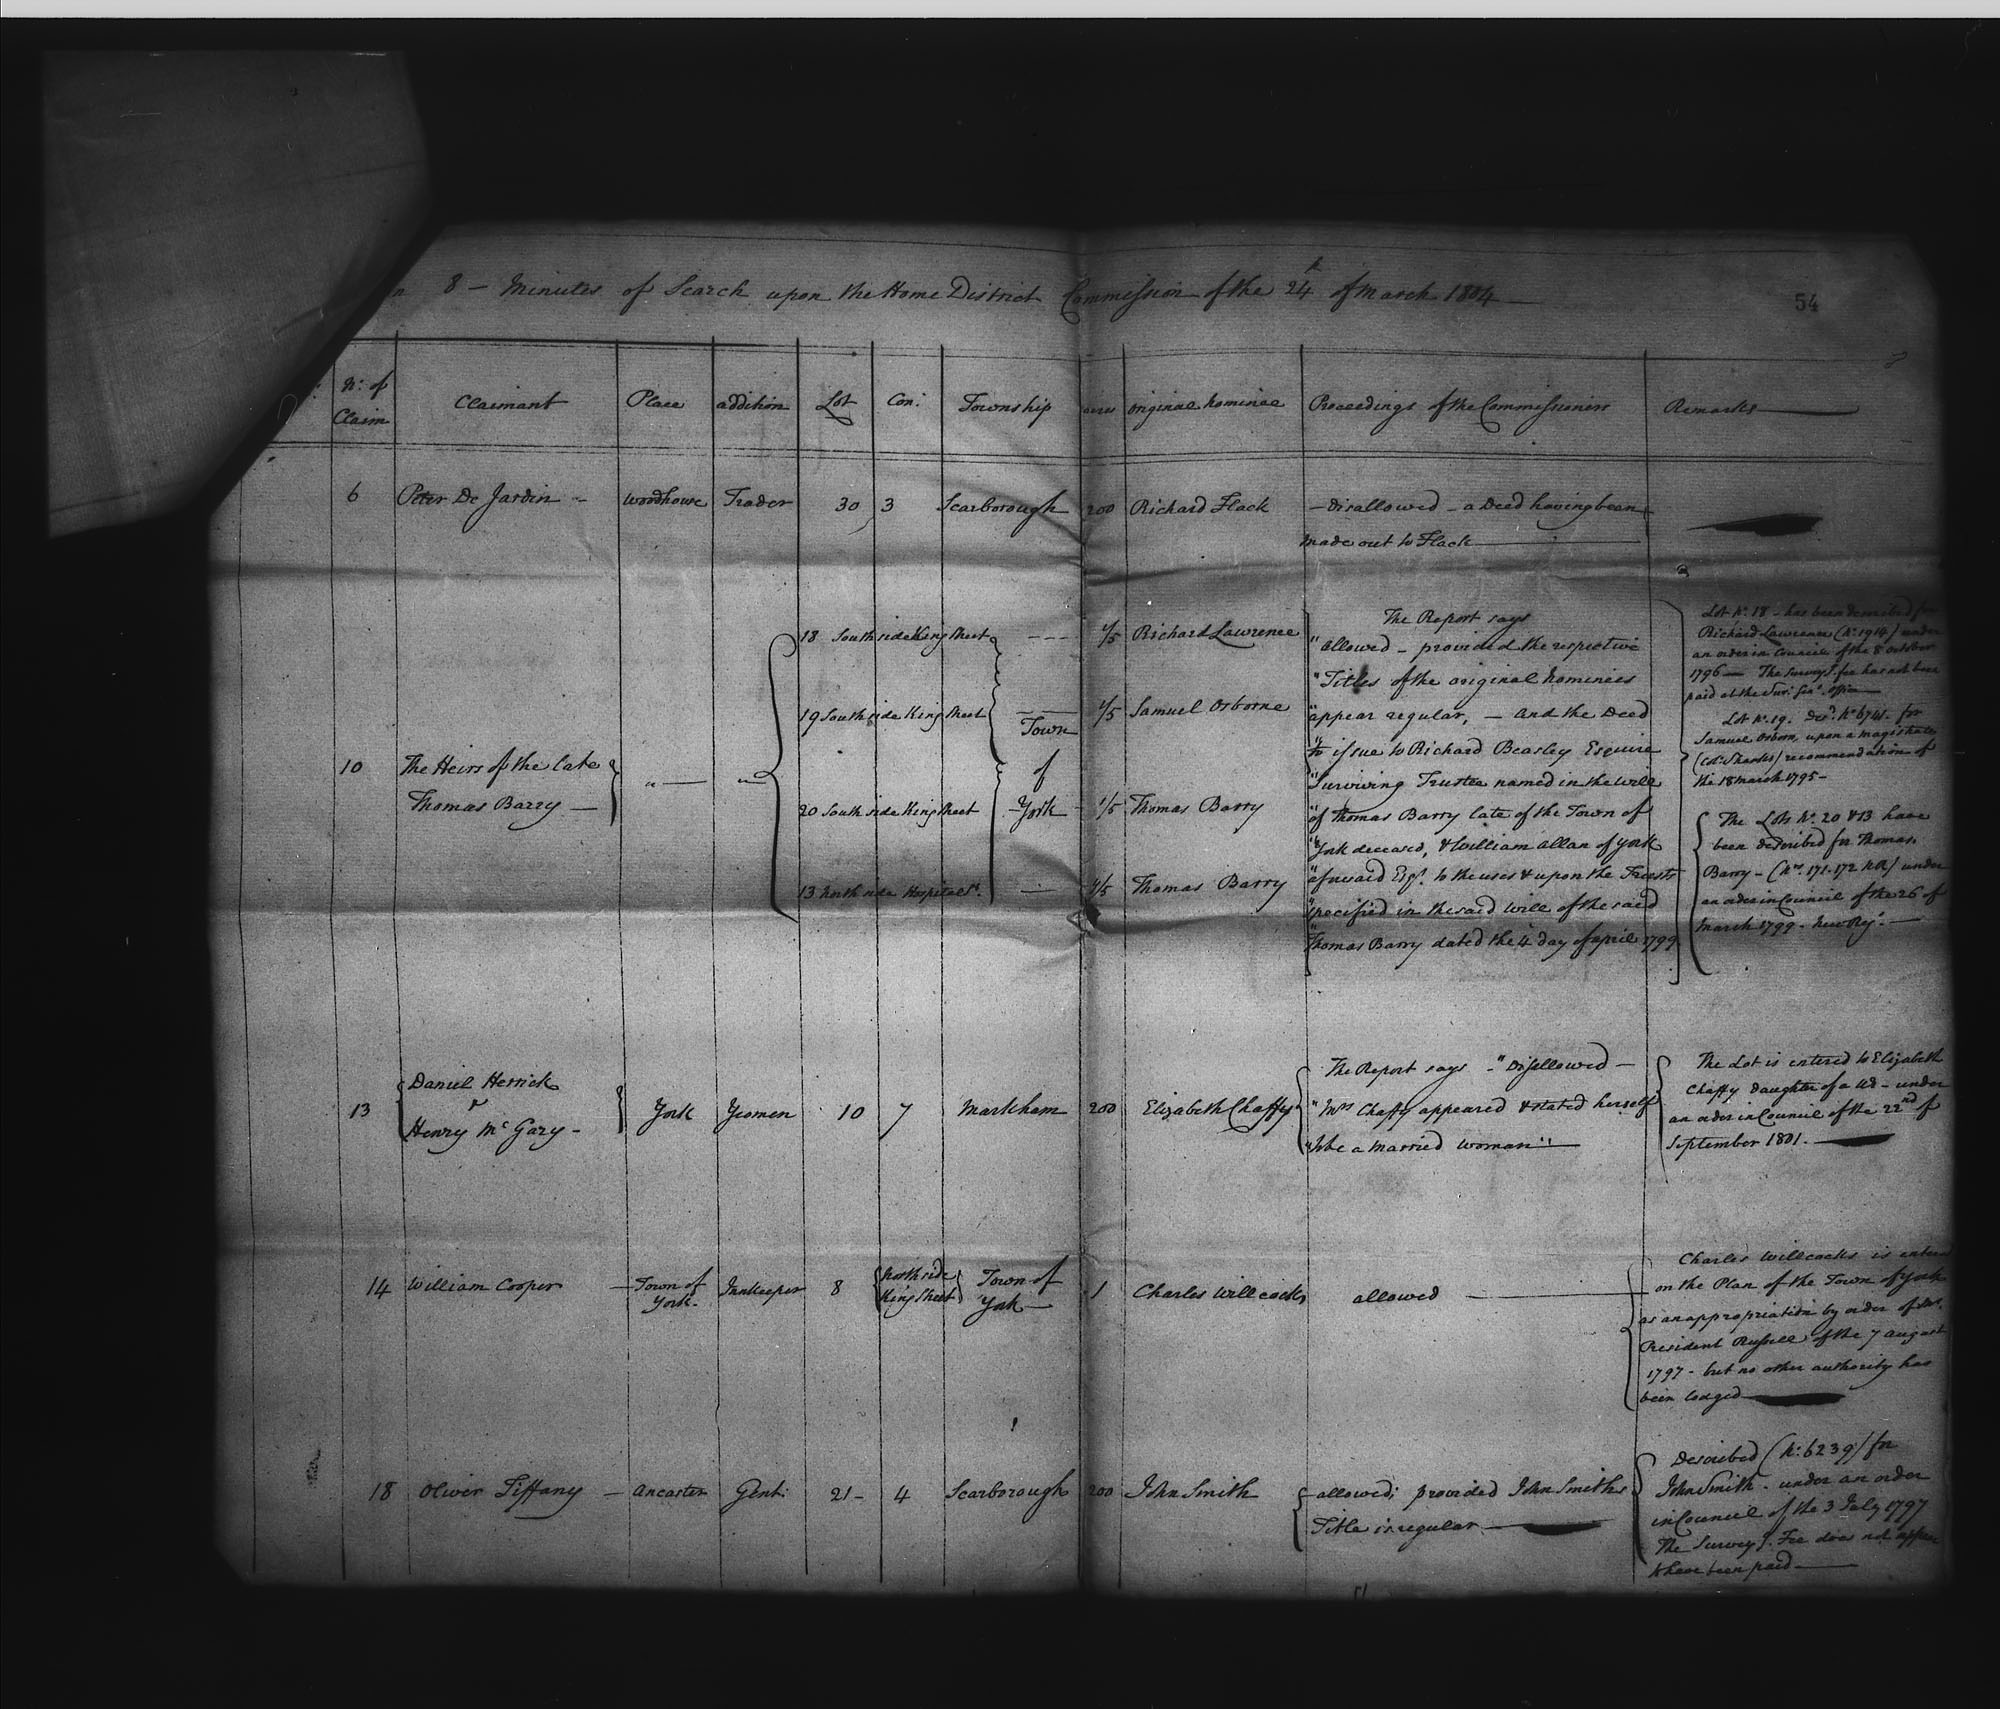 8 - Minutes of Search upon the Home District Commission of the 24th of March 1804
54
No. of Claim
Claimant
Place
addition
Lot
Con:
Township
acres
original nominee
Proceedings of the Commissioners
Remarks
6 Peter De Jardin - Woodhouse Trader 30 3 Scarborough 200 Richard Flack
- Disallowed - a Deed having been
made out to Flack
10 The Heirs of the late
Thomas Barry
18 South side King Street 1/5 Richard Lawrence
19 South side King Street 1/5 Samuel Osborne
20 South side King Street 1/5 Thomas Barry
13 North side Hospital St. 1/5 Thomas Barry
Town
of
York
The Report says
"allowed - provided the respective
"Titles of the original nominees
"appear regular, - and the Deed
"to issue to Richard Beasley Esquire
"Surviving Trustee named in the will
"of Thomas Barry late of the Town of
"York deceased, & William Allan of York
"aforesaid Esqr. to the uses & upon the Trusts
"specified in the said Will of the said
"Thomas Barry dated the 4 day of april 1799
Lot No. 18 - has been described for
Richard Lawrence (No. 1914) under
an order in Council of the 8 October
1796 - The Survey J. fee has not been
paid at the Sur: Genl. office
Lot No. 19. Desd. No. 6741. for
Samuel Osborn, upon a magistrate
recommendation of
the 18 march 1795 -
The Lots No. 20 & 13 have
been described for Thomas
Barry - (Nos. 171. 172 NR) under
an order in Council of the 26 of
March 1799 - New Regs.
13 Daniel Herrick
&
Henry Mc Gary -
York Yeomen 10 7 Markham 200 Elizabeth Chaffy
The Report says - "Disallowed -
"Mrs Chaffy appeared & stated herself
"to be a married woman"
The Lot is entered to Elizabeth
Chaffy daughter of a UE - under
an order in Council of the 22nd of
September 1801.
14 William Cooper - Town of York. Innkeeper 8 North side King Street Town of York 1 Charles Willcocks allowed
Charles Willcocks is entered
on the Plan of the Town of York
as an appropriation by order of Mr.
President Russell of the 7 August
1797 - but no other authority has
been lodged
18 Oliver Tiffany - Ancaster Gent: 21 - 4 Scarborough 200 John Smith
- allowed; provided John Smiths
Title is regular
Described (No: 6239) for
John Smith - under an order
in Council of the 3 July 1797
The Survey J. Fee does not appear
to have been paid